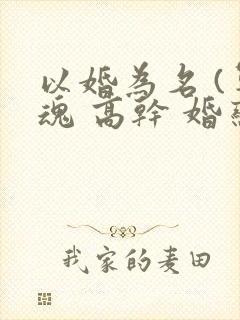 以婚為名(
魂 高幹 婚
我家的麦田